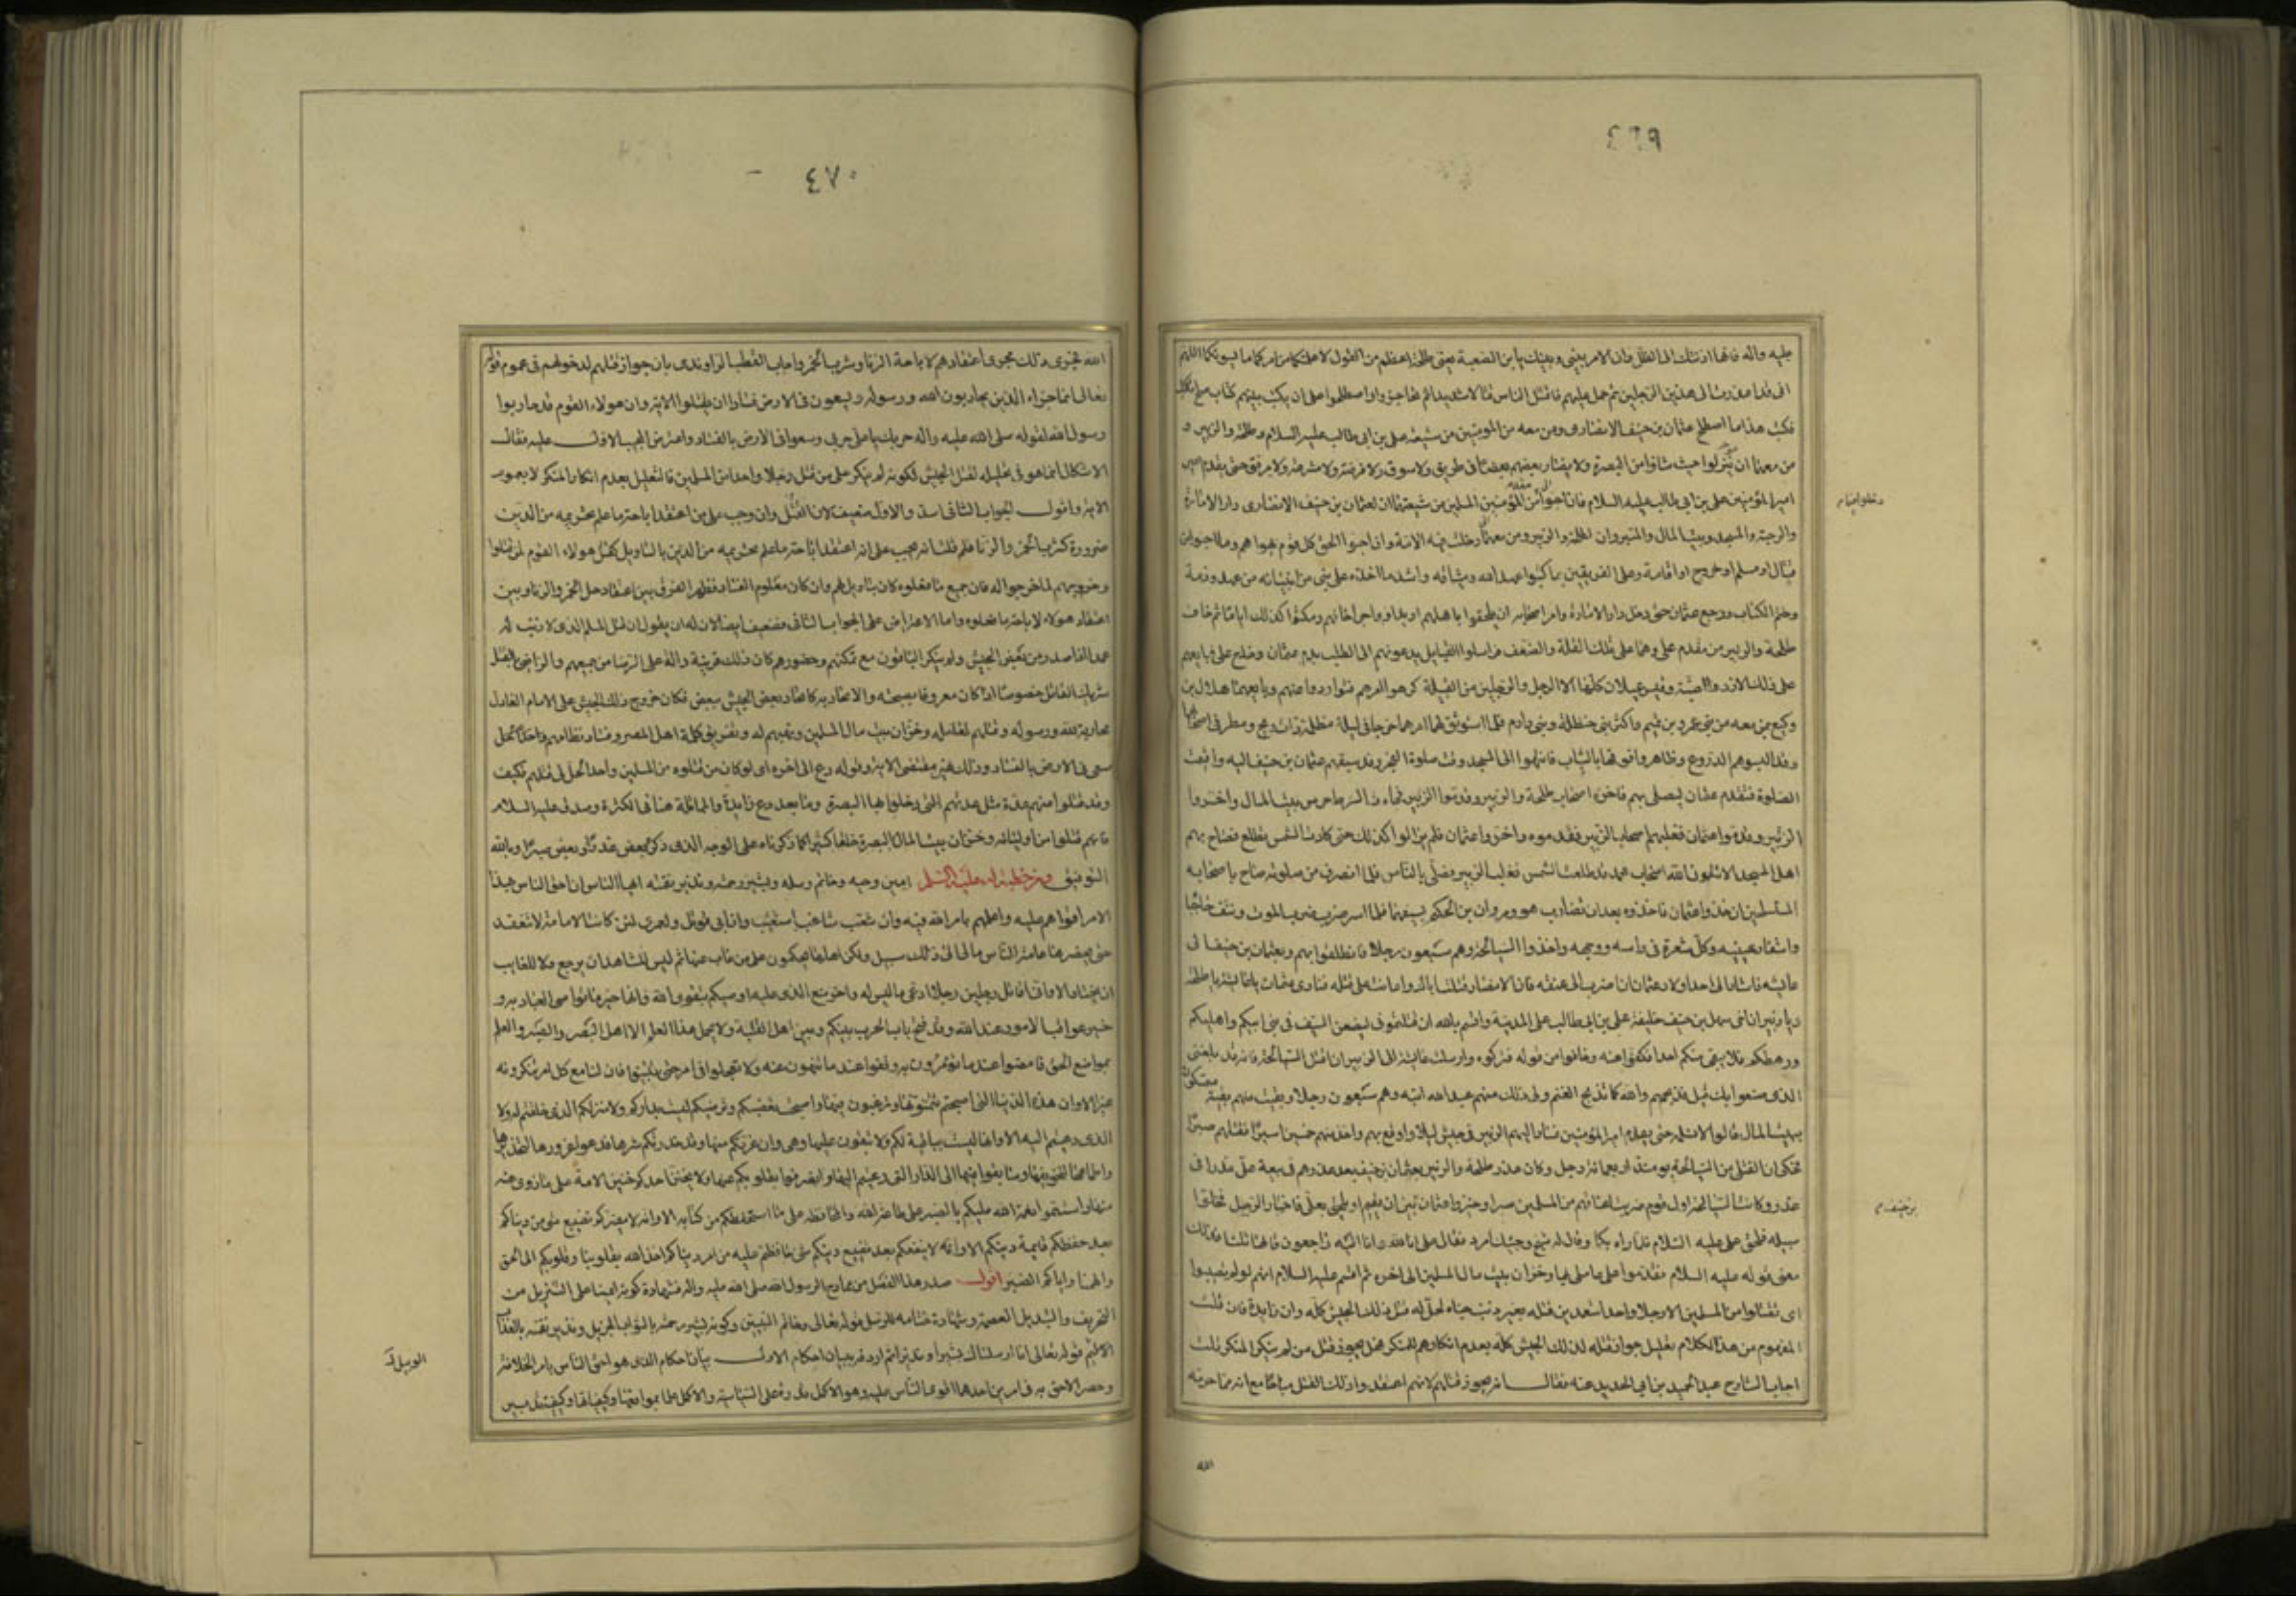 ٤٦٩
عليه واله فانها ادنتك الى الظل وان الامر بيني وبينك يا بن الصعبة يعني طلحة اعظم من القول لاعلمتكما من امركما ما يسوئكما اللهم
انى قد اعذرت الى هذين الرجلين ثم حمل عليهم فاقتتل الناس قتالا شديدا ثم تحاجزوا واصطلحوا على ان يكتب بينهم كتاب صلح
فكتب هذا ما اصطلح عثمان بن حنيف الانصارى ومن معه من المؤمنين من شيعة على بن ابى طالب عليه السلام وطلحة والزبير و
من معهما ان ينزلوا حيث شاؤا من البصرة ولا يضار بعضهم بعضا فى طريق ولا سوق ولا فرضة ولا مشرعة ولا مرفق حتى يقدم
امير المؤمنين على بن ابى طالب عليه السلام فان احبوا
والرحبة والمسجد وبيت المال والمنبر وان لطلحة والزبير ومن معهما
قتال او مسلم او خروج او اقامة وعلى الفريقين بما كتبوا عهد الله وميثاقه واشد ما اخذه على نبى من انبيائه من عهد وذمة
وختم الكتاب ورجع عثمان حتى دخل دار الامارة وامر اصحابه ان يلحقوا باهلهم ويداووا جراحاتهم ومكثوا كذلك اياما ثم خاف
طلحة والزبير من مقدم على وهما على تلك القلة والضعف فراسلوا القبايل يدعونهم الى الطلب بدم عثمان وخلع على فبايعهم
على ذلك الازد وا ضبة وقيس عيلان كلها الا الرجل والرجلين من القبيلة كرهوا امرهم فتواروا عنهم وبايعهما هلال بن
وكيع بمن معه من بنى عمرو بن تميم واكثر بنى حنظلة وبنى دارم فلما استوثق لهما امرهما خرجا فى ليلة مظلمة ذات ريح ومطر فى اصحابهما
وقد البسوهم الدروع وظاهروا فوقها بالثياب فانتهوا الى المسجد وقت صلوة الفجر وقد سبقهم عثمان بن حنيف اليه واقيمت
الصلوة فتقدم عثمان ليصلى بهم فاخره اصحاب طلحة والزبير وقدموا الزبير فجاءت السبابجة حرس بيت المال واخروا
الزبير وقدموا عثمان فغلبهم اصحاب الزبير فقدموه واخروا عثمان فلم يزالوا كذلك حتى كادت الشمس تطلع فصاح بهم
اهل المسجد الا تتقون الله اصحاب محمد قد طلعت الشمس فغلب الزبير فصلى بالناس فلما انصرف من صلوته صاح باصحابه
المتسلحين ان خذوا عثمان فاخذوه بعد ان تضارب هو ومروان بن الحكم بسيفهما فلما اسر ضرب ضرب الموت ونتف حاجباه
واشفار عينيه وكل شعرة فى راسه ووجهه واخذوا السبابجة وهم سبعون رجلا فانطلقوا بهم وبعثمان بن حنيف الى
عايشة فاشارت الى احد اولاد عثمان ان اضرب الى عنقه فان الانصار قتلت اباك واعانت على قتله فنادى عثمان يا عايشة يا طلحة
ويا زبير ان اخى سهل بن حنيف خليفة على بن ابى طالب على المدينة واقسم بالله ان قتلتمونى ليضعن السيف فى بنى ابيكم واهليكم
ورهطكم فلا يبقى منكم احدا فكفوا عنه وخافوا من قوله فتركوه وارسلت عايشة الى الزبير ان اقتل السبابجة فانه قد بلغنى
الذى صنعوا بك قبل فذبحهم والله كما تذبح الغنم ولى ذلك منهم عبد الله ابنه وهم سبعون رجلا وبقيت منهم بقية متمسكون
ببيت المال قالوا لا ندفعه حتى يقدم امير المؤمنين فسار اليهم الزبير فى جيش ليلا واوقع بهم واخذ منهم خمسين اسيرا فقتلهم صبرا
فحكى ان القتلى من السبابجة يومئذ اربعمائة رجل وكان غدر طلحة والزبير بعثمان بن حنيف بعد غدرهم فى بيعة على غدرا فى
غدر وكانت السبابجة اول قوم ضربت اعناقهم من المسلمين صبرا وخيروا عثمان بين ان يقيم او يلحق بعلى فاختار الرحيل فخلوا
سبيله فلحق على عليه السلام فلما راه بكا وقال له فارقتك شيخ وجئتك امرد فقال على انا لله وانا اليه راجعون قالها ثلثا فذلك
معنى قوله عليه السلام فقدموا على عاملى بها وخزان بيت مال المسلمين الى اخره ثم اقسم عليه السلام انهم لو لم يصيبوا
اى يقتلوا من المسلمين الا رجلا واحدا متعمدين قتله بغير ذنب جناه لحل له قتل ذلك الجيش كله وان زايدة فان قلت
المفهوم من هذا الكلام تعليل جواز قتله لذلك الجيش كله بعدم انكارهم للمنكر فهل يجوز قتل من لم ينكر المنكر قلت
اجاب الشارح عبد الحميد بن ابى الحديد عنه فقال انه يجوز قتلهم لانهم اعتقدوا ذلك القتل مباحا مع انه مما حرمه
الله
٤٧٠
الله فجرى ذلك مجرى اعتقادهم لاباحة الزنا وشرب الخمر واجاب القطب الراوندى بان جواز قتلهم لدخولهم فى عموم قوله
تعالى انما جزاء الذين يحاربون الله ورسوله ويسعون فى الارض فسادا ان يقتلوا الاية وان هولاء القوم قد حاربوا
رسول الله لقوله صلى الله عليه واله حربك يا على حربى وسعوا فى الارض بالفساد واعترض المجيب الاول عليه فقال
الاشكال انما هو فى تعليله لقتل الجيش لكونه لم ينكر على من قتل رجلا واحدا من المسلمين فالتعليل بعدم انكار المنكر لا بعموم
الاية واقول الجواب الثانى اسد والاول ضعيف لان القتل وان وجب على من اعتقد اباحة ما علم تحريمه من الدين
ضرورة كشرب الخمر والزنا فلم قلت انه يجب على انه اعتقد اباحة ما علم تحريمه من الدين بالتاويل كقتل هولاء القوم لمن قتلوا
وخروجهم لما خرجوا له فان جميع ما فعلوه كان بتاويل لهم وان كان معلوم الفساد فظهر الفرق بين اعتقاد حل الخمر والزنا وبين
اعتقاد هولاء لاباحة ما فعلوه واما الاعتراض على الجواب الثانى فضعيف ايضا لان له ان يقول ان قتل المسلم الذى لا ذنب له
عمدا اذا صدر من بعض الجيش ولم ينكر الباقون مع تمكنهم وحضورهم كان ذلك قرينة دالة على الرضا من جميعهم والراضى بالقتل
شريك القاتل خصوصا اذا كان معروفا بصحبته والاتحاد به كاتحاد بعض الجيش ببعض فكان خروج ذلك الجيش على الامام العادل
محاربة لله ورسوله وقتلهم لعامله وخزان بيت مال المسلمين ونهبهم له وتفريق كلمة اهل المصر وفساد نظامهم
سعى فى الارض بالفساد وذلك عين مقتضى الاية وقوله دع الى اخره اى لو كان من قتلوه من المسلمين واحدا لحل لى قتلهم فكيف
وقد قتلوا منهم عدة مثل عدتهم التى دخلوا بها البصرة وما بعد دع زايدة والمماثلة هنا فى الكثرة وصدق عليه السلام
فانهم قتلوا من اوليائه وخزان بيت المال بالبصرة خلقا كثيرا كما ذكرناه على الوجه الذى ذكر بعض غدرا وبعض صبرا وبالله
التوفيق ومن خطبة له عليه السلم امين وحيه وخاتم رسله وبشير رحمته ونذير نقمته ايها الناس ان احق الناس بهذا
الامر اقواهم عليه واعلمهم بامر الله فيه وان شغب شاغب استعتب وان ابى قوتل ولعمرى لئن كانت الامامة لا تنعقد
حتى يحضرها عامة الناس ما الى ذلك سبيل ولكن اهلها يحكمون على من غاب عنها ثم ليس للشاهد ان يرجع ولا للغايب
ان يختار الا وانى اقاتل رجلين رجلا ادعى ما ليس له واخر منع الذى عليه اوصيكم بتقوى الله فانها خير ما تواصى العباد به و
خير عواقب الامور عند الله وقد فتح باب الحرب بينكم وبين اهل القبلة ولا يحمل هذا العلم الا اهل البصر والصبر والعلم
بمواضع الحق فامضوا عند ما تؤمرون به وقفوا عند ما تنهون عنه ولا تعجلوا فى امر حتى تبينوا فان لنا مع كل امر تنكرونه
غيرا الا وان هذه الدنيا التى اصبحتم تتمنونها وترغبون فيها واصبحت تغضبكم وترضيكم ليست بداركم ولا منزلكم الذى خلقتم له ولا
الذى دعيتم اليه الا وانها ليست بباقية لكم ولا تبقون عليها وهى وان غرتكم منها وقد حذرتكم شرها فدعوا غرورها لتحذيرها
واطماعها لتخويفها وسابقوا فيها الى الدار التى دعيتم اليها وانصرفوا بقلوبكم عنها ولا يخنن احدكم خنين الامة على ما زوى عنه
منها واستتموا نعمة الله عليكم بالصبر على طاعة الله والمحافظة على ما استحفظكم من كتابه الا وانه لا يضركم تضييع شىء من دنياكم
بعد حفظكم قايمة دينكم الا وانه لا ينفعكم بعد تضييع دينكم شىء حافظتم عليه من امر دنياكم اخذ الله بقلوبنا وقلوبكم الى الحق
والهمنا واياكم الصبر اقول صدر هذا الفصل من ممادح الرسول الله صلى الله عليه واله فشهادة كونه امينا على التنزيل من
التحريف والتبديل العصمة وشهادة ختامه للرسل قوله تعالى وخاتم النبيين وكونه بشير رحمته بالثواب الجزيل ونذير نقمته بالعذاب
الاليم قوله تعالى انا ارسلناك بشيرا ونذيرا ثم اردفه ببيان احكام الاول بيان احكام الذى هو احق الناس بامر الخلافة
وحصر الاحق به فى امرين احدهما اقوى الناس عليه وهو الاكمل قدرة على السياسة والاكمل علما بمواقعها وكيفياتها وكيفية تدبير
الوبيل